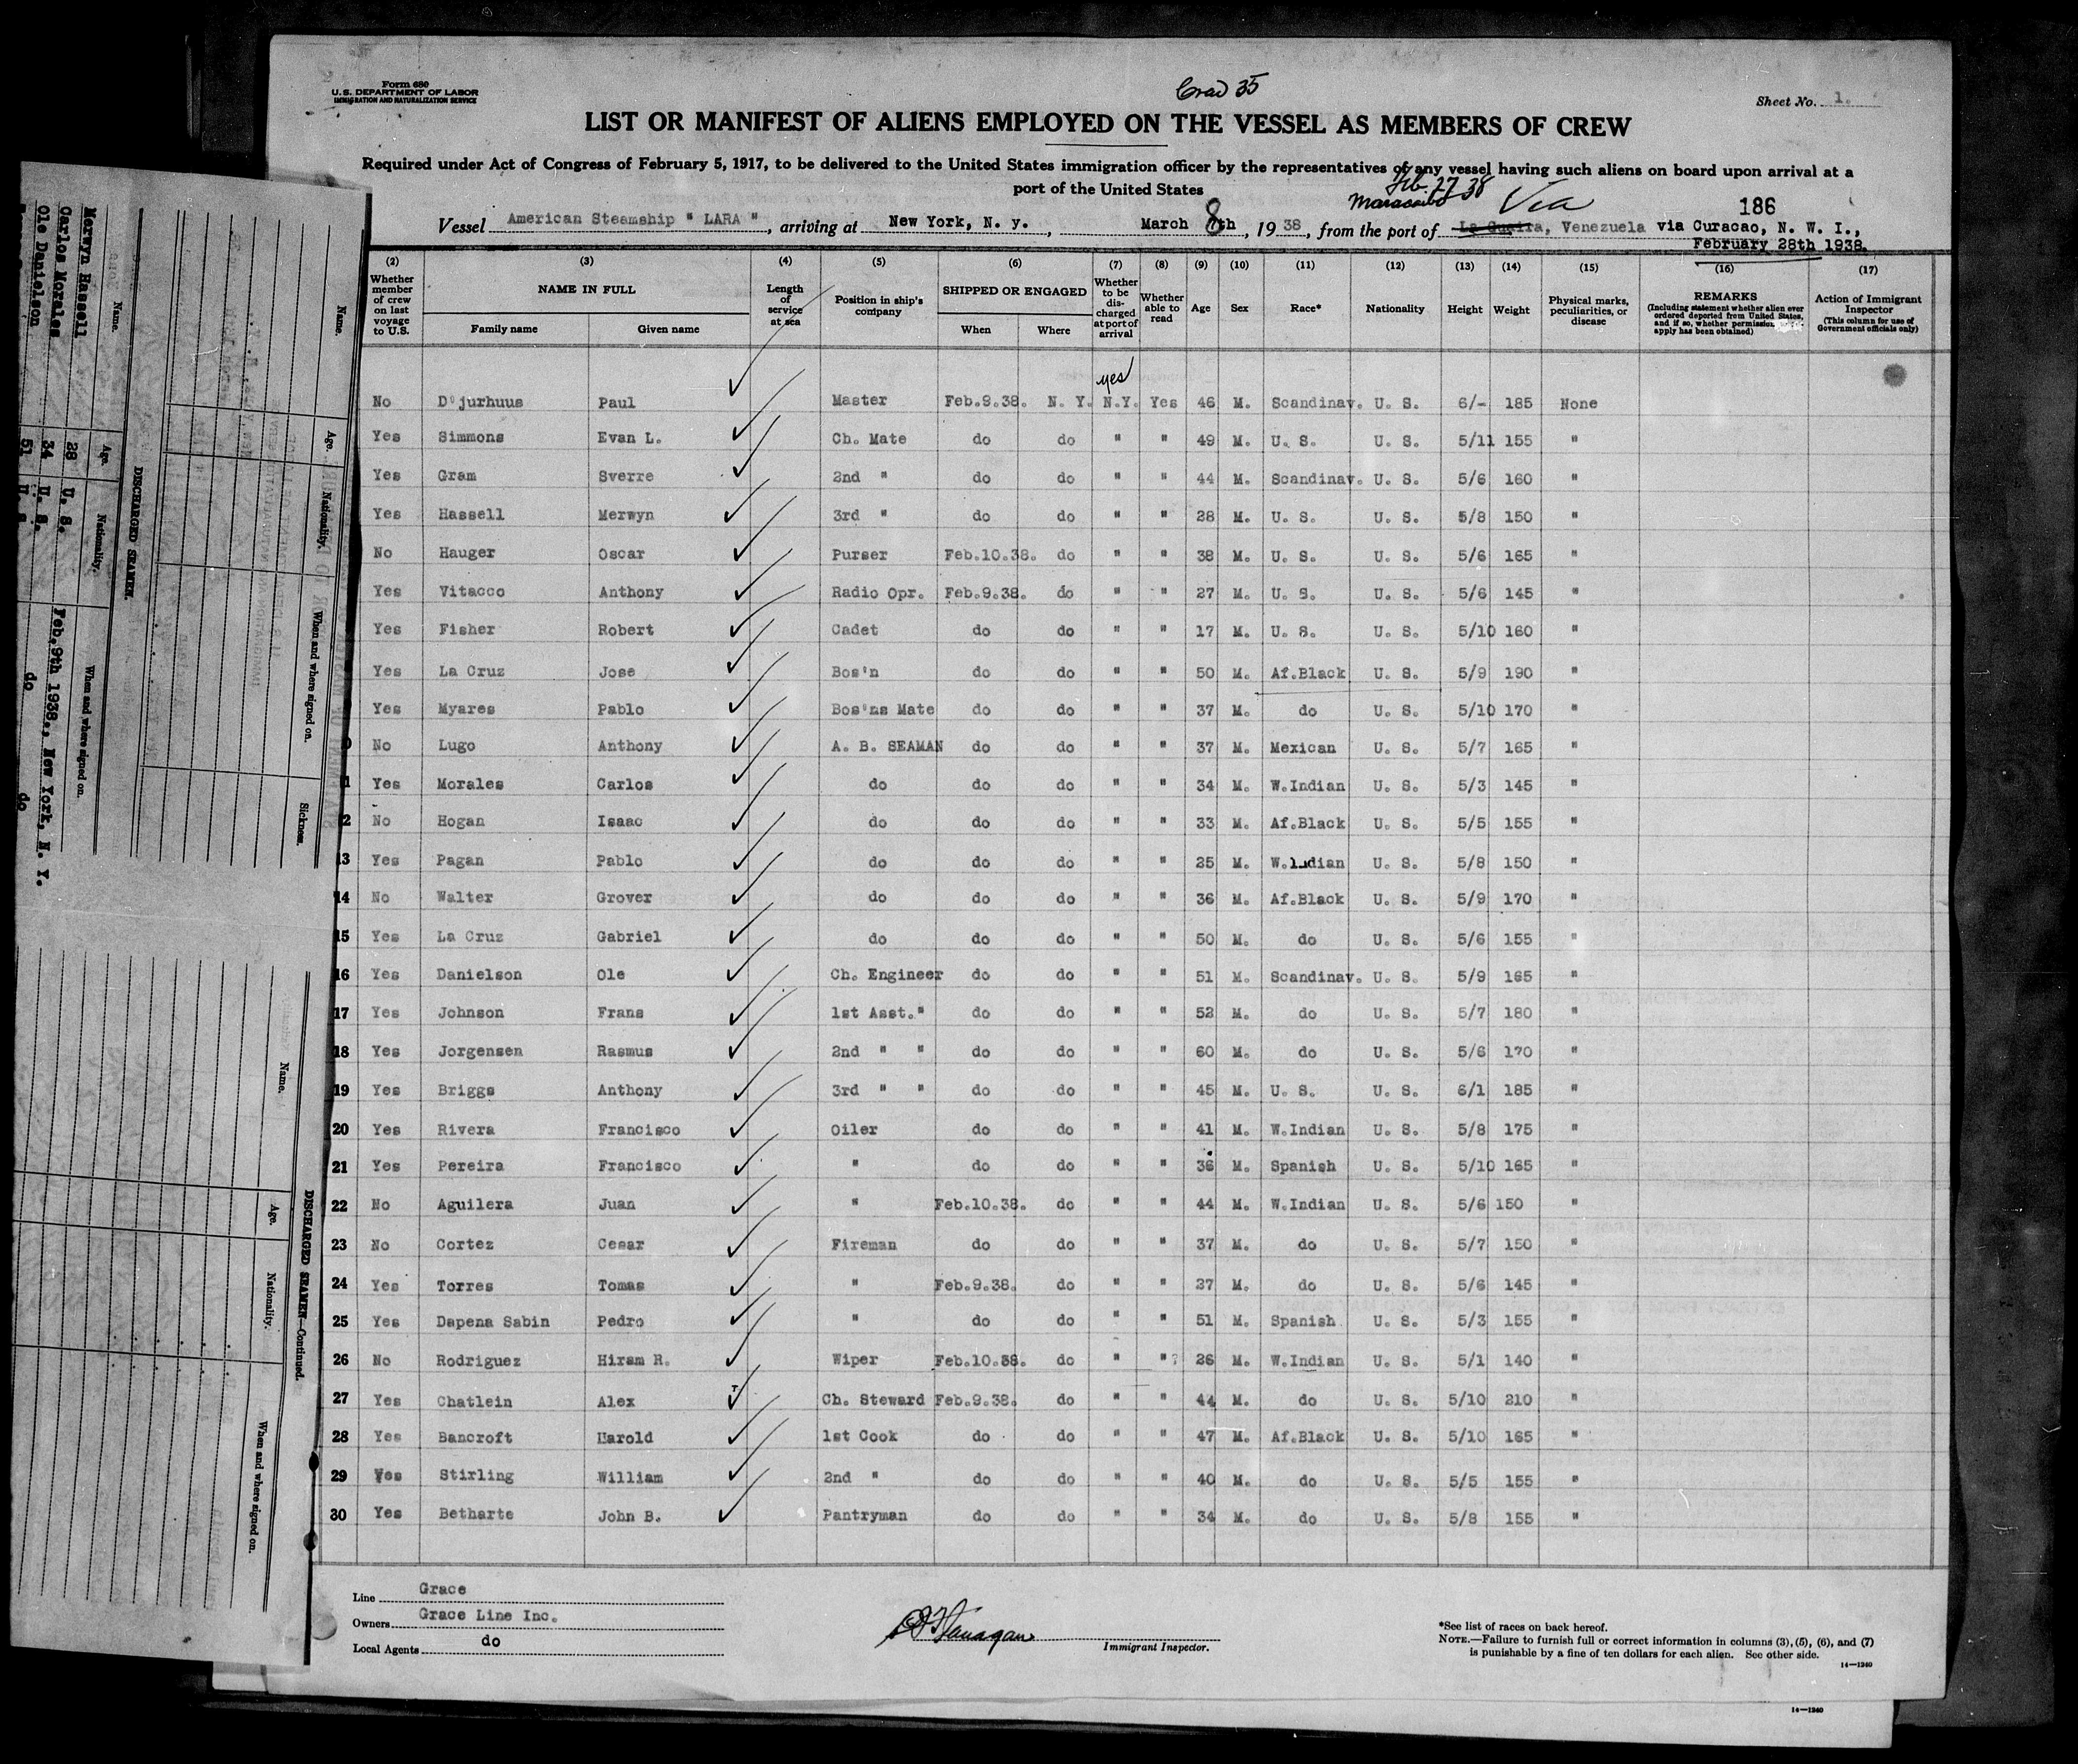 Form 680
U. S. DEPARTMENT OF LABOR
IMMIGRATION AND NATURALIZATION SERVICE
35
Sheet No. 1.
LIST OR MANIFEST OF ALIENS EMPLOYED ON THE VESSEL AS MEMBERS OF CREW
Required under Act of Congress of February 5, 1917, to be delivered to the United States immigration officer by the representatives of any vessel having such aliens on board upon arrival at a
port of the United States
Feb. 27 38
Maracaibo Via 186
Vessel American Steamship " LARA ", arriving at New York, N. y., March 8th, 1938, from the port of La Guaira, Venezuela via Curacao, N. W. I.,
February 28th 1938.
(2) Whether member of crew on last voyage to U.S. (3) NAME IN FULL Family name Given name (4) Length of service at sea (5) Position in ship's company (6) SHIPPED OR ENGAGED When Where (7) Whether to be discharged at port of arrival (8) Whether able to read (9) Age (10) Sex (11) Race* (12) Nationality (13) Height (14) Weight (15) Physical marks, peculiarities, or disease (16) REMARKS (Including statement whether alien ever ordered deported from United States, and if so, whether permission apply has been obtained) (17) Action of Immigrant Inspector (This column for use of Government officials only)
yes
No D'jurhuus Paul Master Feb.9.38. N. Y. N.Y. Yes 46 M. Scandinav. U. S. 6/- 185 None
Yes Simmons Evan L. Ch. Mate do do " " 49 M. U. S. U. S. 5/11 155 "
Yes Gram Sverre 2nd " do do " " 44 M. Scandinav. U. S. 5/6 160 "
Yes Hassell Merwyn 3rd " do do " " 28 M. U. S. U. S. 5/8 150 "
No Hauger Oscar Purser Feb.10.38. do " " 38 M. U. S. U. S. 5/6 165 "
Yes Vitacco Anthony Radio Opr. Feb.9.38. do " " 27 M. U. S. U. S. 5/6 145 "
Yes Fisher Robert Cadet do do " " 17 M. U. S. U. S. 5/10 160 "
Yes La Cruz Jose Bos'n do do " " 50 M. Af.Black U. S. 5/9 190 "
Yes Myares Pablo Bos'ns Mate do do " " 37 M. do U. S. 5/10 170 "
0 No Lugo Anthony A. B. SEAMAN do do " " 37 M. Mexican U. S. 5/7 165 "
1 Yes Morales Carlos do do do " " 34 M. W.Indian U. S. 5/3 145 "
2 No Hogan Isaac do do do " " 33 M. Af.Black U. S. 5/5 155 "
13 Yes Pagan Pablo do do do " " 25 M. W.Indian U. S. 5/8 150 "
14 No Walter Grover do do do " " 36 M. Af.Black U. S. 5/9 170 "
15 Yes La Cruz Gabriel do do do " " 50 M. do U. S. 5/6 155 "
16 Yes Danielson Ole Ch. Engineer do do " " 51 M. Scandinav. U. S. 5/9 165 "
17 Yes Johnson Frans 1st Asst." do do " " 52 M. do U. S. 5/7 180 "
18 Yes Jorgensen Rasmus 2nd " " do do " " 60 M. do U. S. 5/6 170 "
19 Yes Briggs Anthony 3rd " " do do " " 45 M. U. S. U. S. 6/1 185 "
20 Yes Rivera Francisco Oiler do do " " 41 M. W.Indian U. S. 5/8 175 "
21 Yes Pereira Francisco " do do " " 36 M. Spanish U. S. 5/10 165 "
22 No Aguilera Juan " Feb.10.38. do " " 44 M. W.Indian U. S. 5/6 150 "
23 No Cortez Cesar Fireman do do " " 37 M. do U. S. 5/7 150 "
24 Yes Torres Tomas " Feb.9.38. do " " 27 M. do U. S. 5/6 145 "
25 Yes Dapena Sabin Pedro " do do " " 51 M. Spanish U. S. 5/3 155 "
26 No Rodriguez Hiram R. Wiper Feb.10.38. do " "? 26 M. W.Indian U. S. 5/1 140 "
27 Yes Chatlein Alex Ch. Steward Feb.9.38. do " " 44 M. do U. S. 5/10 210 "
28 Yes Bancroft Harold 1st Cook do do " " 47 M. Af.Black U. S. 5/10 165 "
29 Yes Stirling William 2nd " do do " " 40 M. do U. S. 5/5 155 "
30 Yes Betharte John B. Pantryman do do " " 34 M. do U. S. 5/8 155 "
Line Grace
Owners Grace Line Inc.
Local Agents do
Flanagan
Immigrant Inspector.
*See list of races on back hereof.
NOTE.—Failure to furnish full or correct information in columns (3), (5), (6), and (7)
is punishable by a fine of ten dollars for each alien. See other side.
14—1240
14—1240
Name. Age. Nationality. When and where signed on. Sickness.
DISCHARGED SEAMEN.
Name. Age. Nationality. When and where signed on.
Merwyn Hassell 28 U. S. Feb.9th 1938., New York, N. Y.
Carlos Morales 34 U. S. do do
Ole Danielson 51 U. S.
DISCHARGED SEAMEN—Continued.
Name. Age. Nationality. When and where signed on.